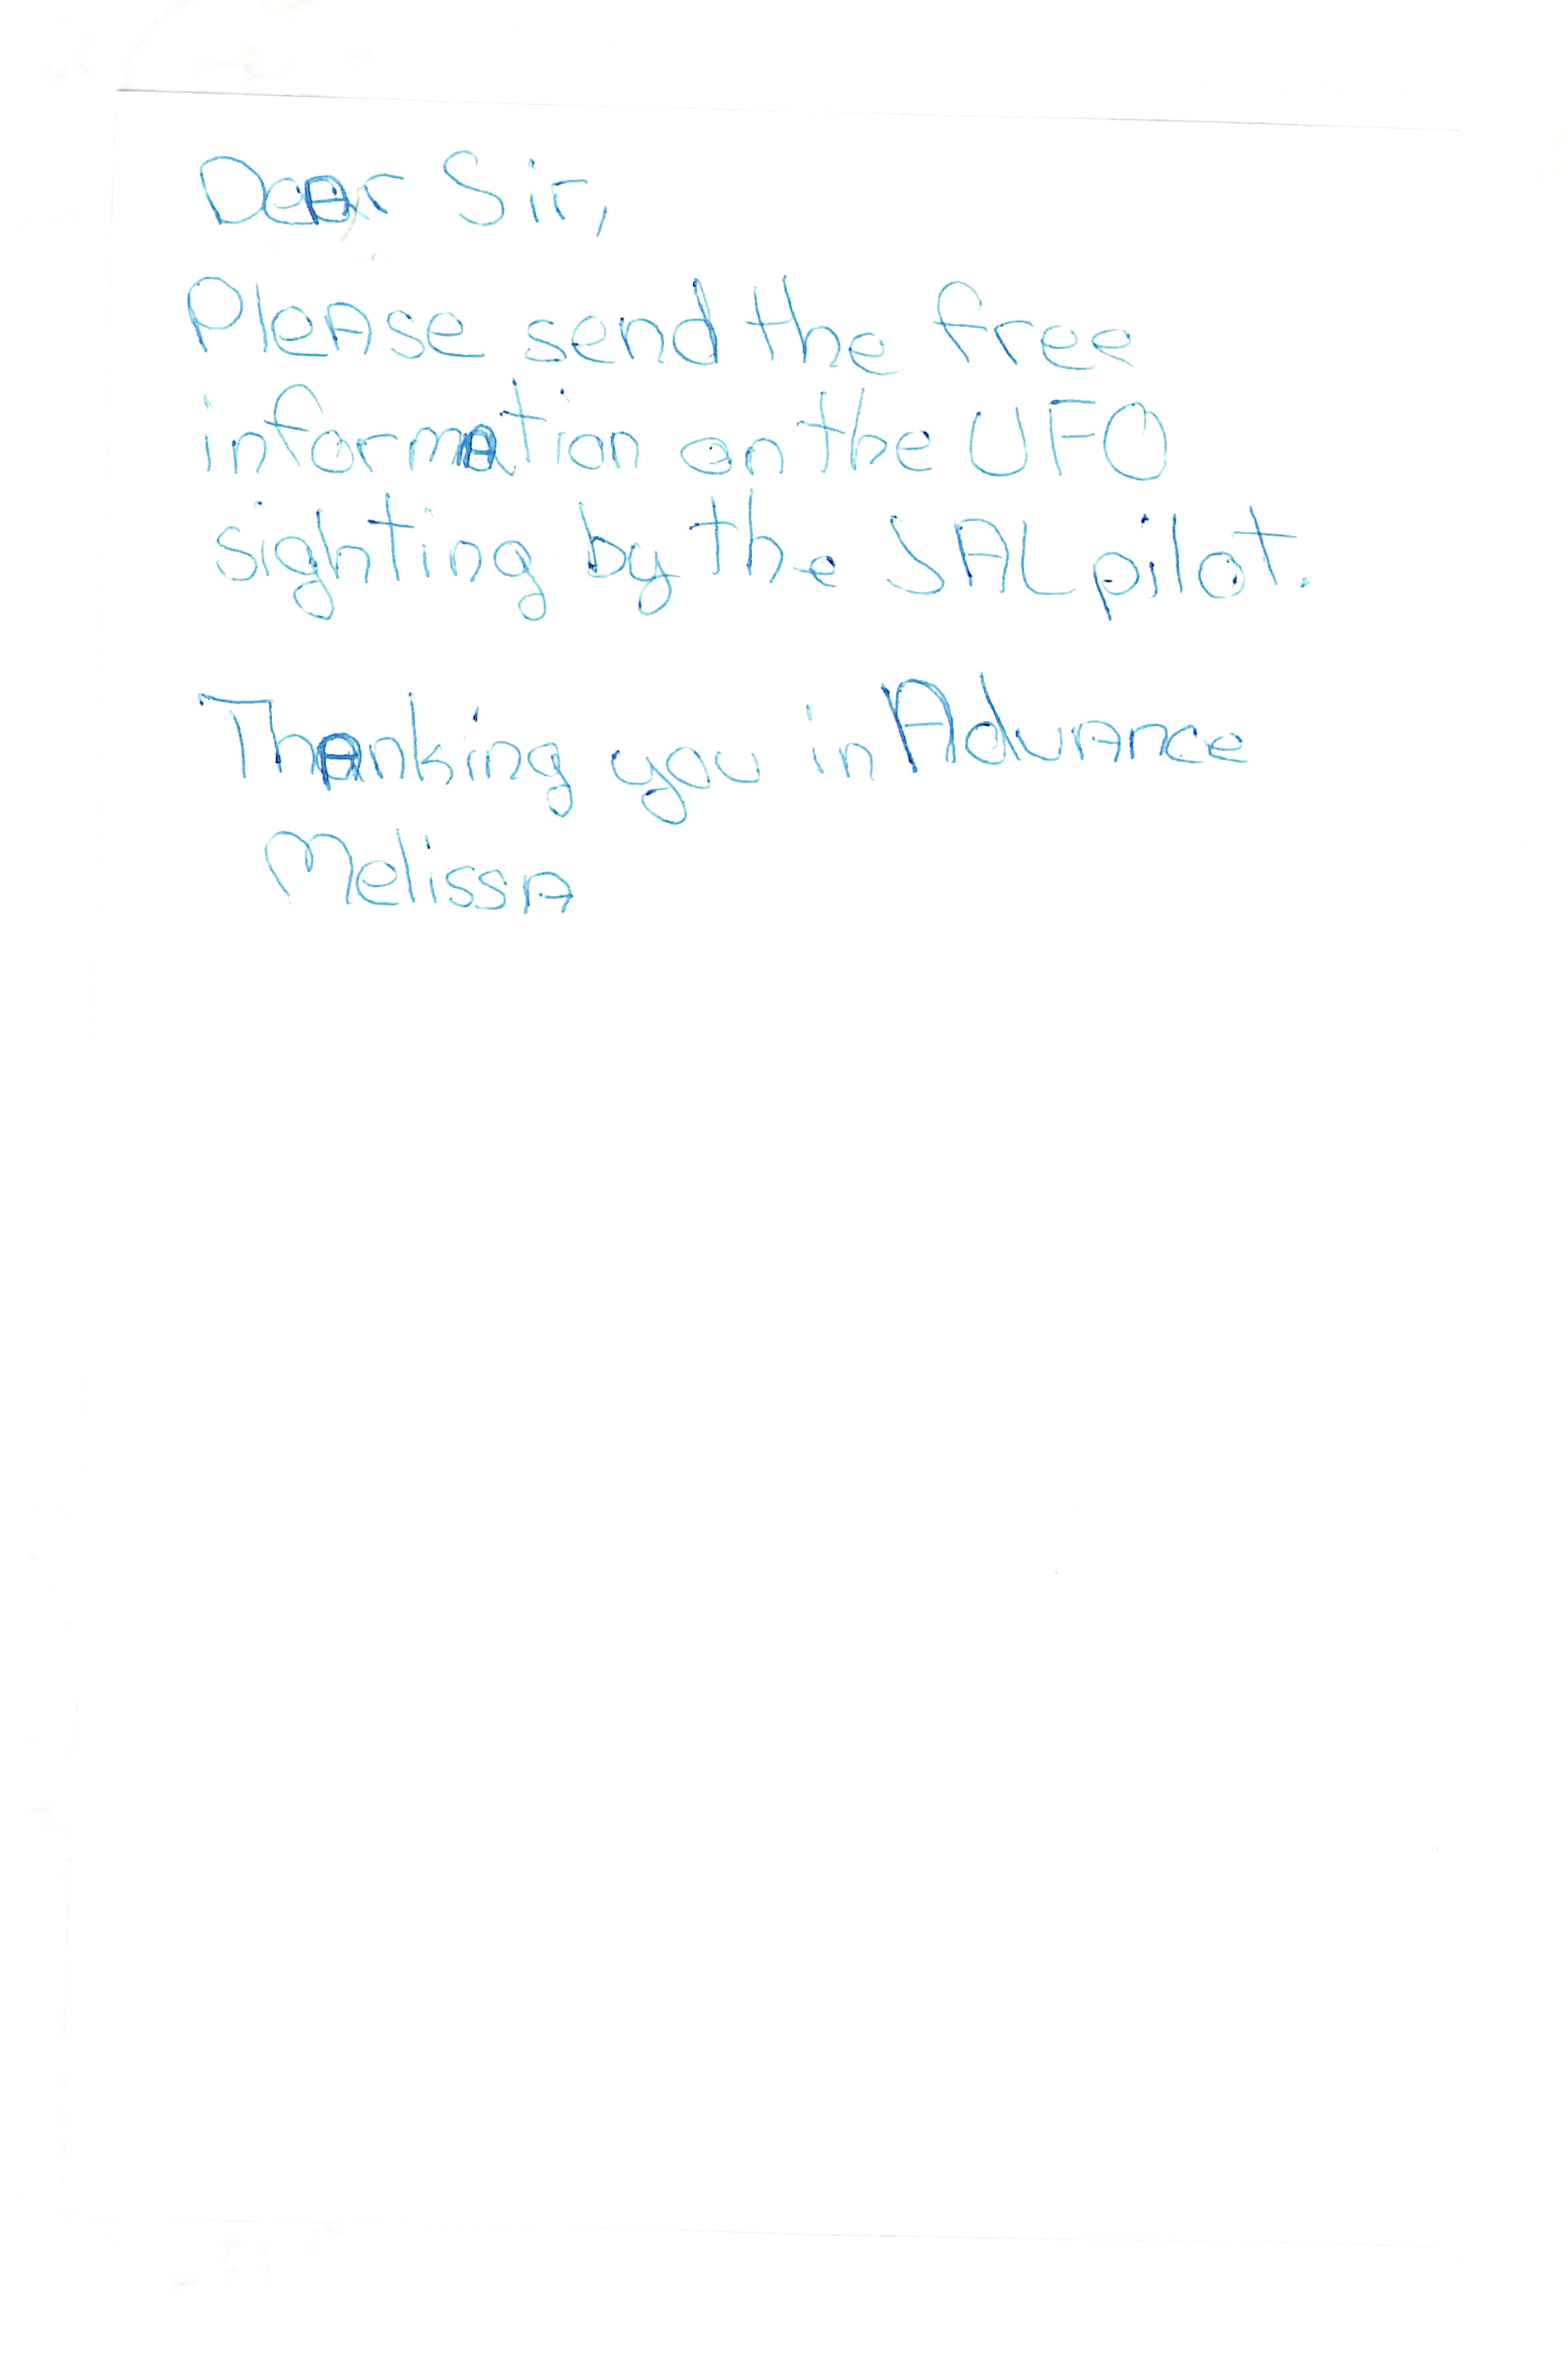 Dear Sir,
Please send the free
information on the UFO
sighting by the SAL pilot.
Thanking you in Advance
Melissa